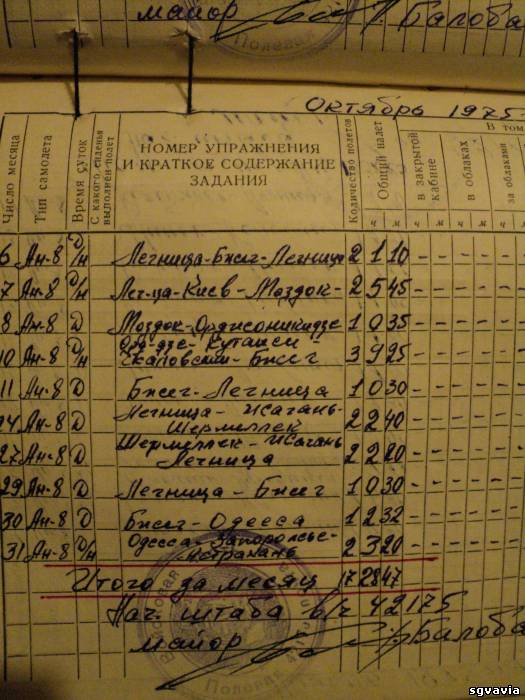 майор Балоба
Полевая
Октябрь 1975
В том
Число месяца
Тип самолета
Время суток
С какого сиденья выполнен полет
НОМЕР УПРАЖНЕНИЯ
И КРАТКОЕ СОДЕРЖАНИЕ
ЗАДАНИЯ
Количество полетов
Общий налет
в закрытой кабине
в облаках
за облаками
ч м ч м ч м ч
6 Ан-8 Д/Н Легница-Бжег-Легница 2 1 10 - - - - -
7 Ан-8 Д/Н Лег-ца-Киев-Моздок- 2 5 45 - - - - -
8 Ан-8 Д Моздок-Орджоникидзе 1 0 35 - - - - -
Ор-дзе-Кутаиси
10 Ан-8 Д/Н Скадовский-Бжег 3 9 25 - - - - -
11 Ан-8 Д Бжег-Легница 1 0 30 - - - - -
Легница-
24 Ан-8 Д Шермеллек 2 2 40 - - - - -
Шермеллек-
27 Ан-8 Д Легница 2 2 20 - - - - -
29 Ан-8 Д Легница-Бжег 1 0 30 - - - - -
30 Ан-8 Д Бжег-Одесса 1 2 32 - - - - -
Одесса-Запорожье-
31 Ан-8 Д/Н Астрахань 2 3 20 - - - - -
Итого за месяц 17 28 47
Нач. штаба в/ч 42175
майор Балоба
Полевая
sgvavia